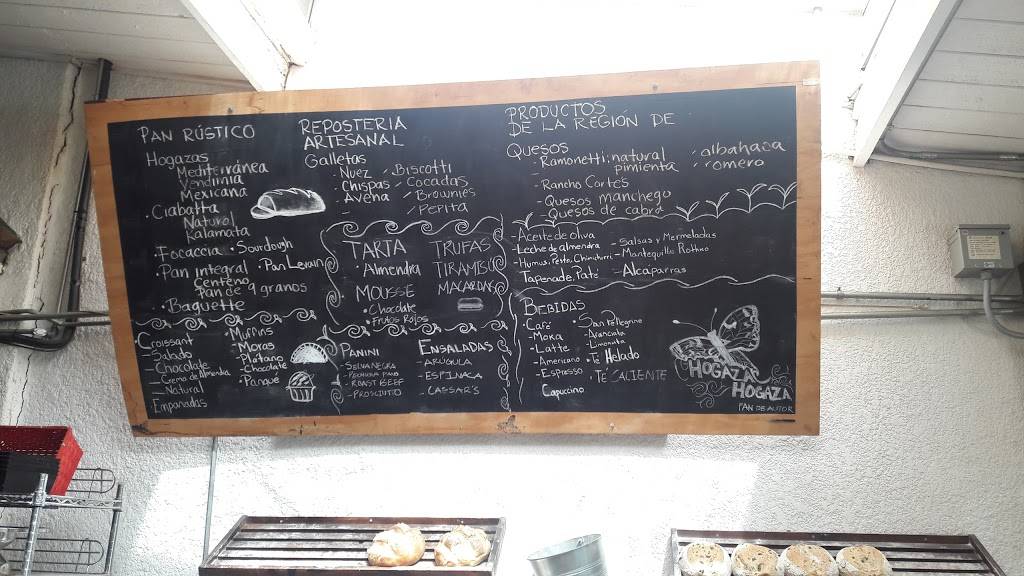 PAN RÚSTICO
Hogazas
Mediterránea
Mexicana
• Ciabatta
Natural
Kalamata
• Focaccia • Sourdough
• Pan integral • Pan Levain
Centeno
Pan de 9 granos
• Baguette
• Croissant
- Salado
- Chocolate
- Natural
- Empanadas
• Muffins
• Moras
• Platano
• Chocolate
• Panqué
REPOSTERIA
ARTESANAL
Galletas
• Nuez - Biscotti
• Chispas - Cocadas
• Avena - Brownies
- Pepita
TARTA
• Almendra
MOUSSE
• Chocolate
• Frutos Rojos
TRUFAS
TIRAMISÚ
MACARONS
PANINI
• SELVA NEGRA
• PECHUGA PAVO
• ROAST BEEF
• PROSCIUTTO
ENSALADAS
- ARÚGULA
- ESPINACA
- CAESAR'S
PRODUCTOS
DE LA REGIÓN DE
QUESOS
- Ramonetti: natural - albahaca
pimienta - romero
- Rancho Cortés
- Quesos manchego
- Quesos de cabra
- Aceite de oliva
- Leche de almendra - Salsas y Mermeladas
- Humus, Pesto, Chimichurri - Mantequilla Rothno
Tapenade Paté - Alcaparras
BEBIDAS
- Café - San Pellegrino
- Moka - Aranciata
- Latte - Limonata
- Americano - Té Helado
- Espresso • TÉ CALIENTE
Capuccino
HOGAZA
HOGAZA
PAN DE AUTOR